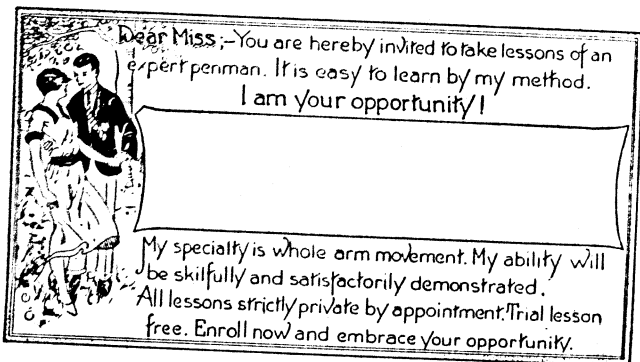 Dear Miss;-You are hereby invited to take lessons of an
expert penman. It is easy to learn by my method.
I am your opportunity!
My specialty is whole arm movement. My ability will
be skilfully and satisfactorily demonstrated.
All lessons strictly private by appointment. Trial lesson
free. Enroll now and embrace your opportunity.